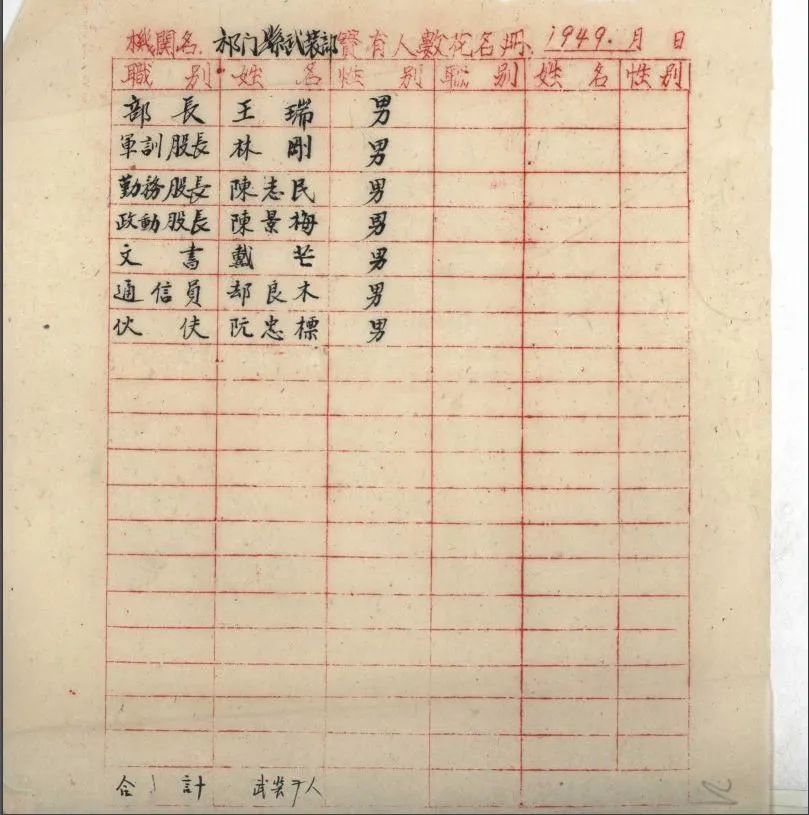 機関名 祁门縣武装部實有人數花名册 1949. 月 日
職别 姓名 性别 職别 姓名 性别
部長 王瑞 男
軍訓股長 林剛 男
勤務股長 陳志民 男
政動股長 陳景梅 男
文書 戴芒 男
通信員 却良木 男
伙伕 阮忠標 男
合計 武裝7人